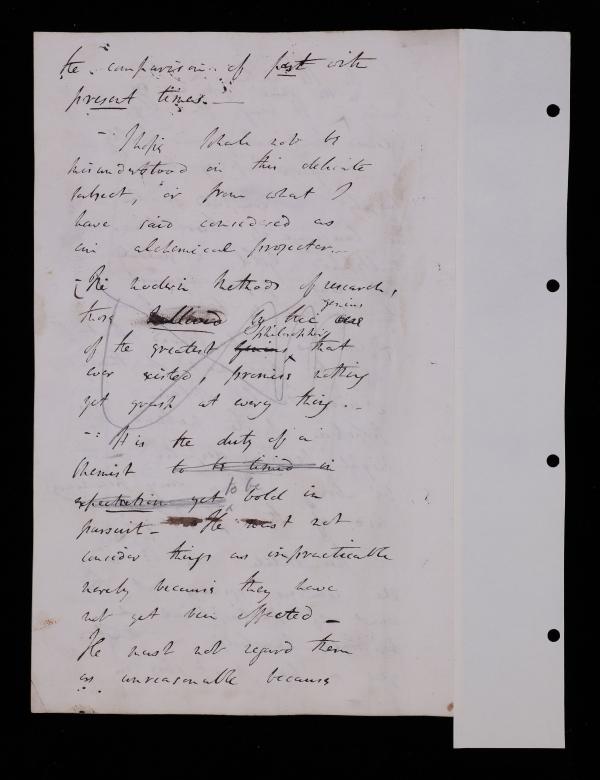 the comparison of past with
present times. —
– I hope I shall not be
misunderstood on this delicate
subject, or from what I
have said considered as
an alchemical projector. –
– The modern methods of research,
those hallowed by the genius
of the greatest genius philosopher that
ever existed, promise nothing
yet grasp at every thing. –
– : It is the duty of a
Chemist to be timid in
expectation yet to be bold in
pursuit – He must not
consider things as impracticable
merely because they have
not yet been effected –
He must not regard them
as unreasonable because